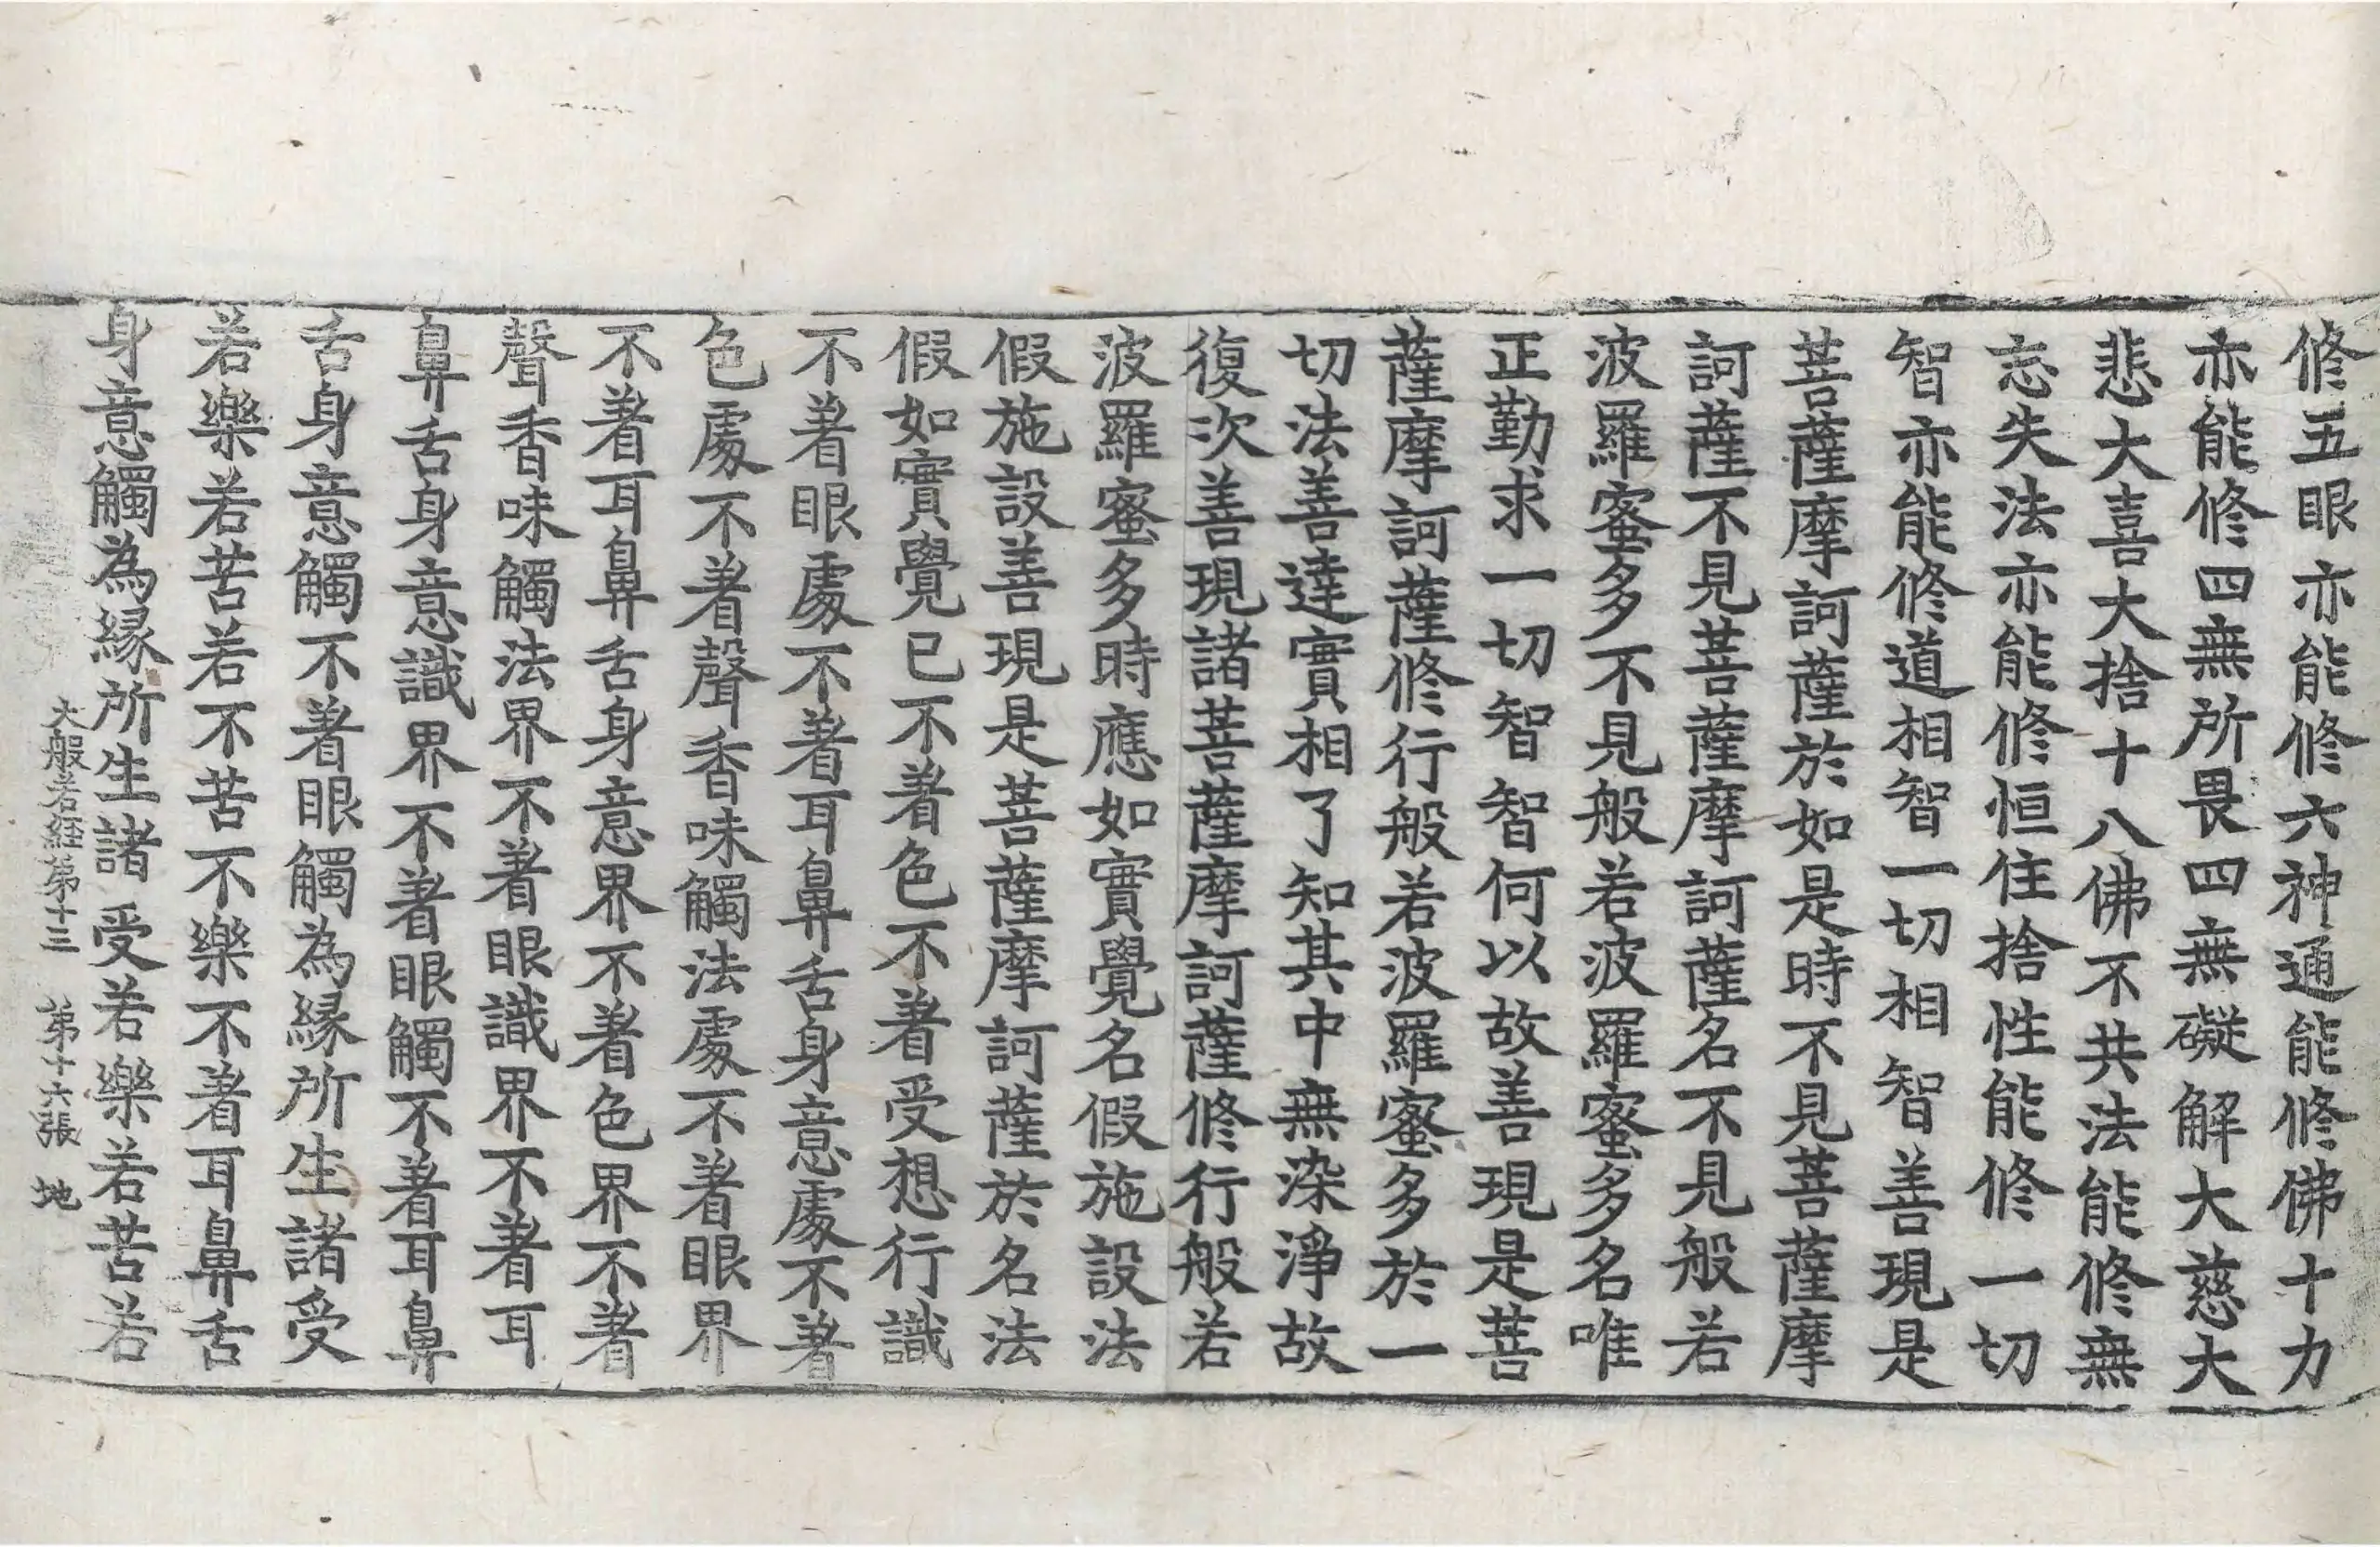 修五眼亦能修六神通能修佛十力
亦能修四無所畏四無礙解大慈大
悲大喜大捨十八佛不共法能修無
忘失法亦能修恒住捨性能修一切
智亦能修道相智一切相智善現是
菩薩摩訶薩於如是時不見菩薩摩
訶薩不見菩薩摩訶薩名不見般若
波羅蜜多不見般若波羅蜜多名唯
正勤求一切智智何以故善現是菩
薩摩訶薩修行般若波羅蜜多於一
切法善達實相了知其中無染淨故
復次善現諸菩薩摩訶薩修行般若
波羅蜜多時應如實覺名假施設法
假施設善現是菩薩摩訶薩於名法
假如實覺已不著色不著受想行識
不著眼處不著耳鼻舌身意處不著
色處不著聲香味觸法處不著眼界
不著耳鼻舌身意界不著色界不著
聲香味觸法界不著眼識界不著耳
鼻舌身意識界不著眼觸不著耳鼻
舌身意觸不著眼觸為緣所生諸受
若樂若苦若不苦不樂不著耳鼻舌
身意觸為緣所生諸受若樂若苦若
大般若経第十三 第十六張 地